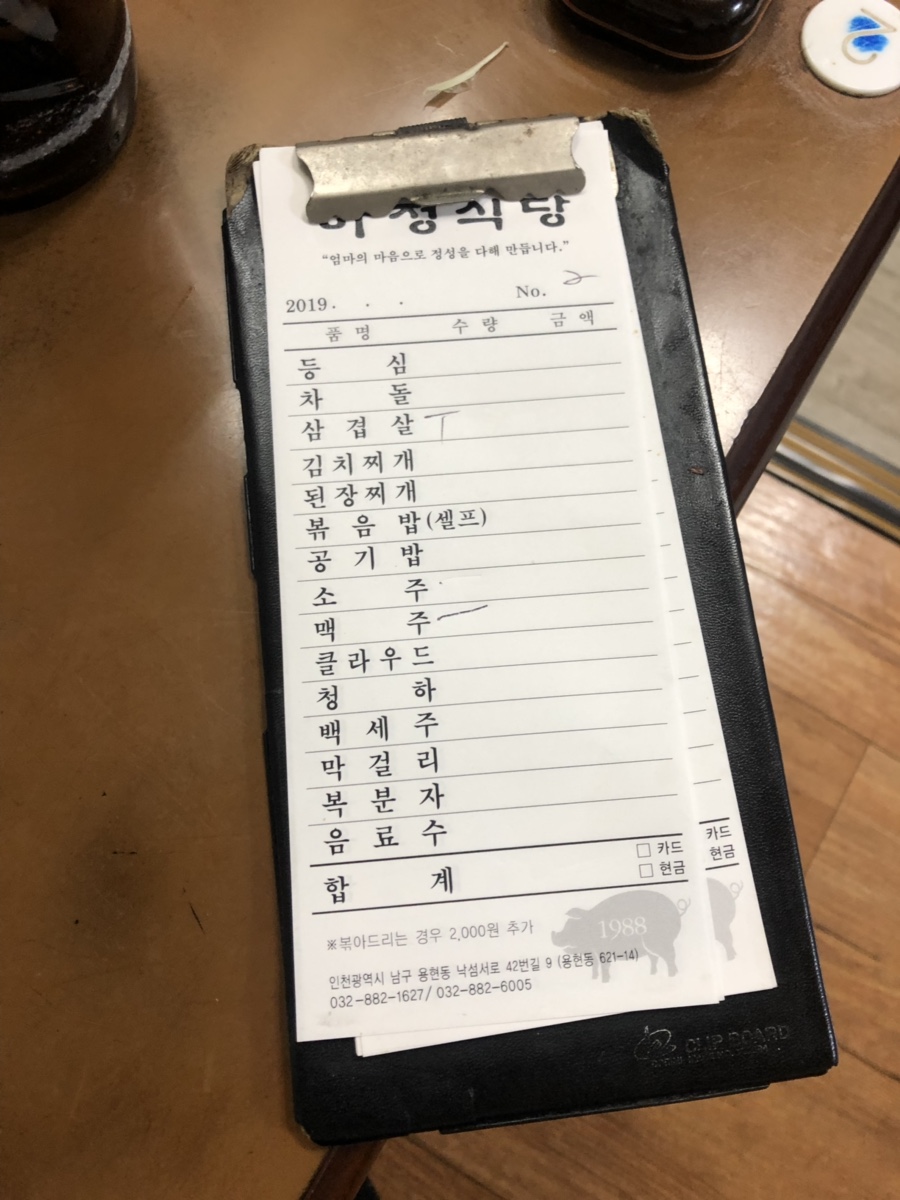 식당
“엄마의 마음으로 정성을 다해 만듭니다.”
2019. . . No. 2
품명 수량 금액
등심
차돌
삼겹살
김치찌개
된장찌개
볶음밥(셀프)
공기밥
소주
맥주
클라우드
청하
백세주
막걸리
복분자
음료수
합계
□ 카드
□ 현금
카드
현금
※볶아드리는 경우 2,000원 추가
1988
인천광역시 남구 용현동 낙섬서로 42번길 9 (용현동 621-14)
032-882-1627/ 032-882-6005
CLIP BOARD